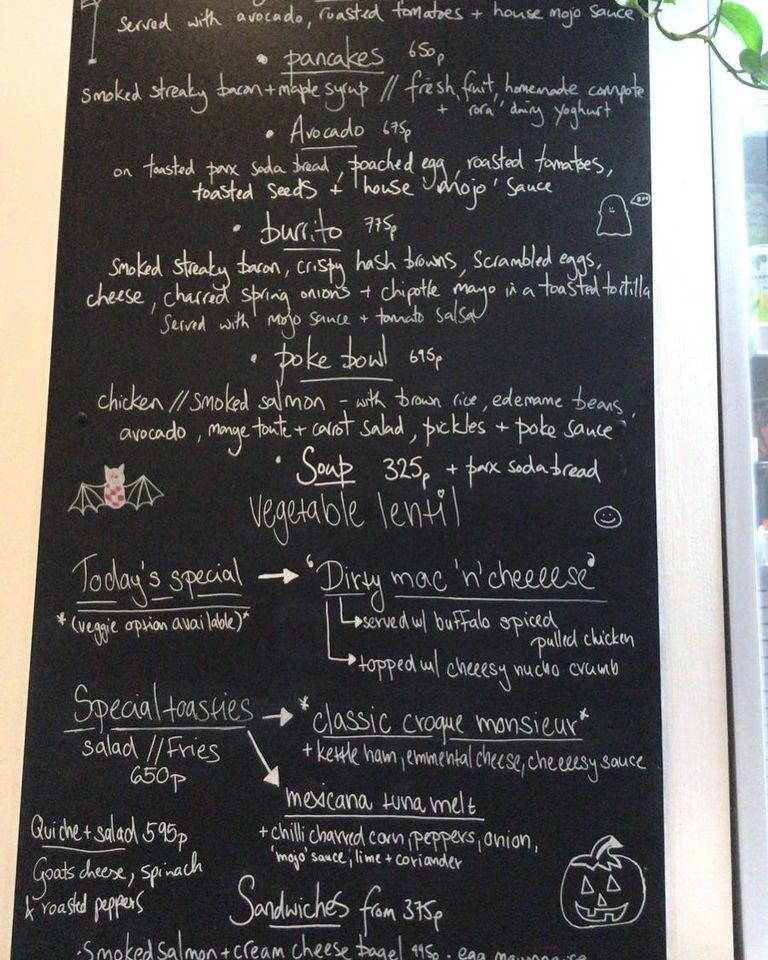 Served with avocado, roasted tomatoes + house mojo sauce
• pancakes 650p
smoked streaky bacon + maple syrup // fresh fruit, homemade compote
+ 'rora' dairy yoghurt
• Avocado 675p
on toasted parx soda bread, poached egg, roasted tomatoes,
toasted seeds + house 'mojo' sauce
BOO
• burrito 775p
smoked streaky bacon, crispy hash browns, scrambled eggs,
cheese, charred spring onions + chipotle mayo in a toasted tortilla
served with mojo sauce + tomato salsa
• poke bowl 695p
chicken // smoked salmon - with brown rice, edemame beans,
avocado, mange toute + carrot salad, pickles + poke sauce
• Soup 325p + parx soda bread
vegetable lentil
Today's special → 'Dirty mac 'n' cheeeese'
*(veggie option available)*
served w/ buffalo spiced
pulled chicken
topped w/ cheeesy nacho crumb
Special toasties → *classic croque monsieur*
salad // Fries
650p
+ kettle ham, emmental cheese, cheeeesy sauce
mexicana tuna melt
+ chilli charred corn, peppers, onion,
'mojo' sauce, lime + coriander
Quiche + salad 595p
Goats cheese, spinach
+ roasted peppers
Sandwiches from 375p
• Smoked salmon + cream cheese bagel 495p • egg mayonnaise